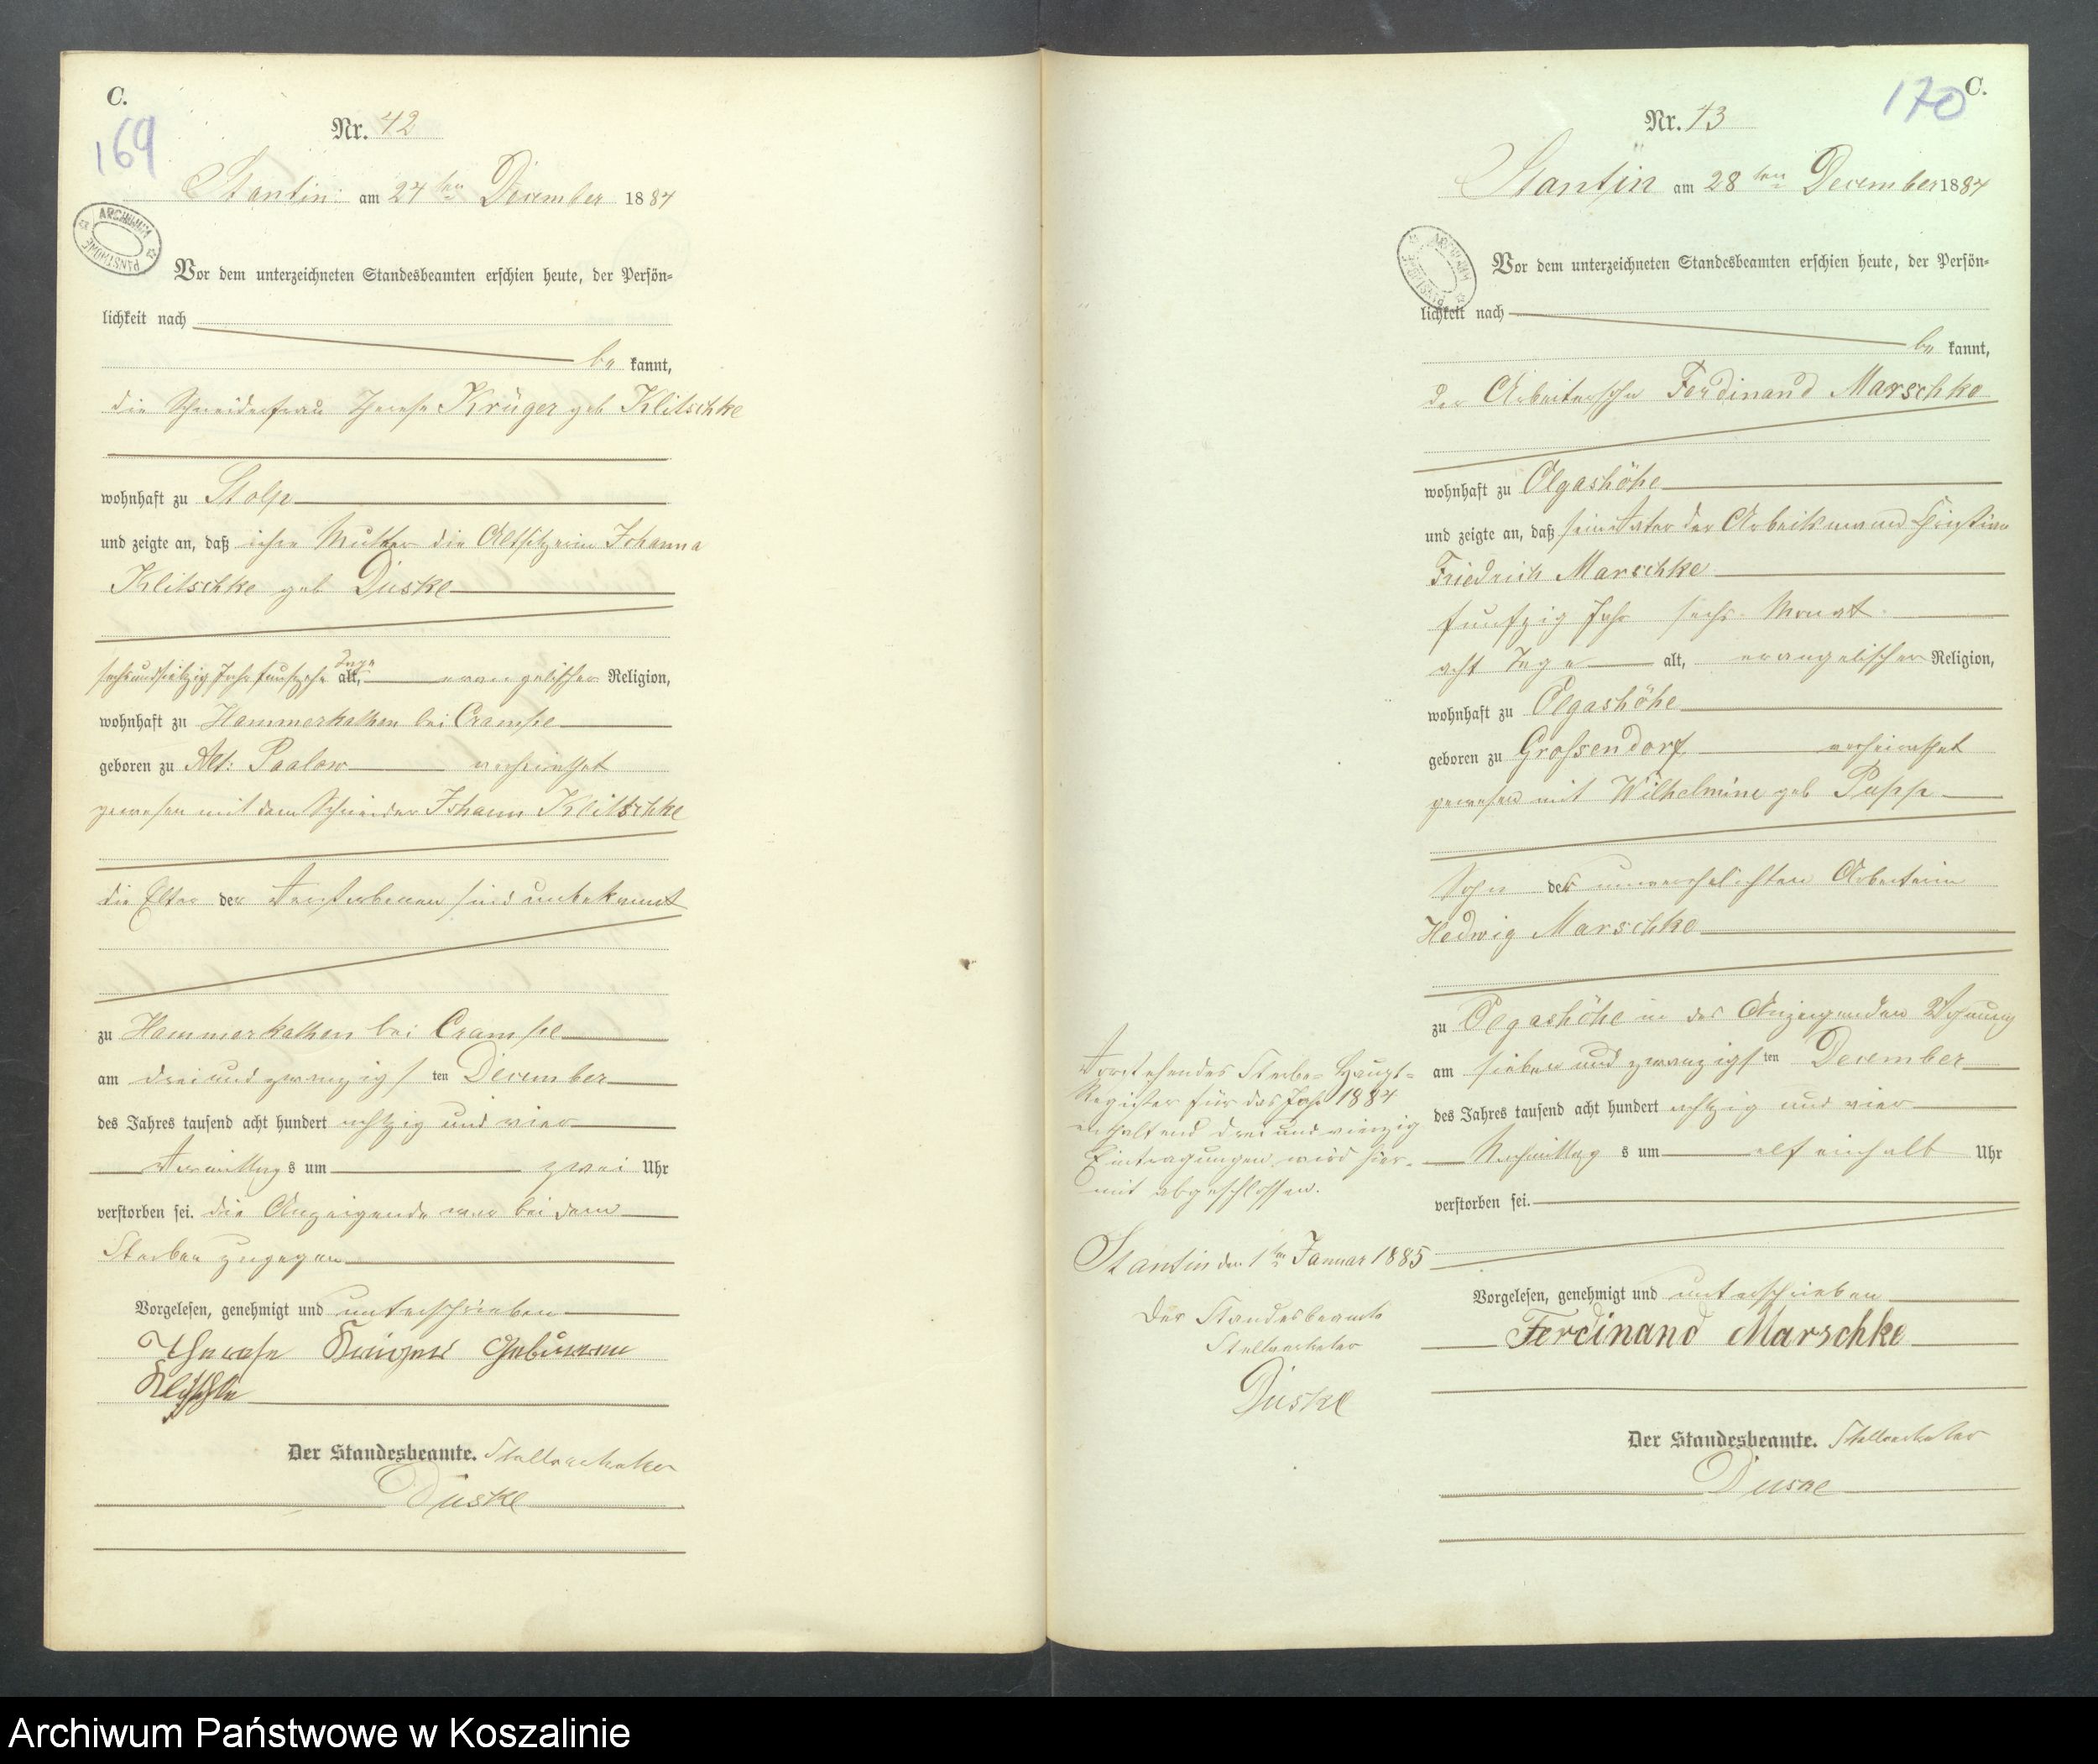 C.
169
Nr. 42
Stantin am 24ten December 1884
ARCHIWUM PAŃSTWOWE
Vor dem unterzeichneten Standesbeamten erschien heute, der Persön=
lichkeit nach
be kannt,
die Schneiderfrau Therese Krüger geb Klitschke
wohnhaft zu Stolp
und zeigte an, daß ihre Mutter die Altsitzerin Johanna
Klitschke geb Duske
sechsundsiebzig Jahr funfzehn Tage alt, evangelischer Religion,
wohnhaft zu Hammerkathen bei Crampe
geboren zu Alt: Paalow verheirathet
gewesen mit dem Schneider Johann Klitschke
die Elter der Verstorbenen sind unbekannt
zu Hammerkathen bei Crampe
am dreiundzwanzigsten December
des Jahres tausend acht hundert achtzig und vier
Vormittags um zwei Uhr
verstorben sei. die Anzeigende war bei dem
Sterben zugegen
Vorgelesen, genehmigt und unterschrieben
Therese Krüger Geborene
Klitschke
Der Standesbeamte. Stellvertreter
Duske
C.
170
Nr. 43
Stantin am 28ten December 1884
ARCHIWUM PAŃSTWOWE
Vor dem unterzeichneten Standesbeamten erschien heute, der Persön=
lichkeit nach
be kannt,
der Arbeitersohn Ferdinand Marschke
wohnhaft zu Olgashöhe
und zeigte an, daß sein Vater der Arbeitsmann Christian
Friedrich Marschke
funfzig Jahr sechs Monat
acht Tage alt, evangelischer Religion,
wohnhaft zu Olgashöhe
geboren zu Grossendorf verheirathet
gewesen mit Wilhelmine geb Papp
Sohn der unverehelichten Arbeiterin
Hedwig Marschke
zu Olgashöhe in des Anzeigenden Wohnung
am sieben und zwanzigsten December
des Jahres tausend acht hundert achtzig und vier
Nachmittags um elf einhalb Uhr
verstorben sei.
Vorgelesen, genehmigt und unterschrieben
Ferdinand Marschke
Der Standesbeamte. Stellvertreter
Duske
Vorstehendes Sterbe=Haupt=
Register für das Jahr 1884
enthaltend drei und vierzig
Eintragungen wird hier=
mit abgeschlossen.
Stantin den 1ten Januar 1885
Der Standesbeamte
Stellvertreter
Duske
Archiwum Państwowe w Koszalinie